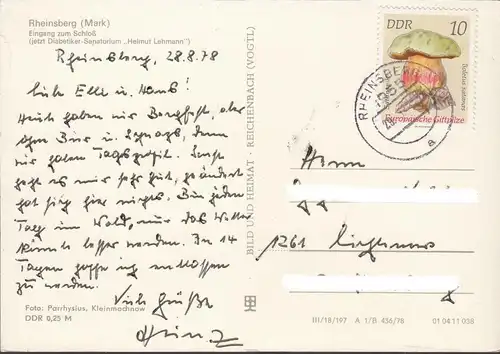 Rheinsberg (Mark)
Eingang zum Schloß
(jetzt Diabetiker-Sanatorium „Helmut Lehmann“)
Rheinsberg, 28.8.78
Liebe Elli u. Hans!
Heute haben wir Bergfest, aber
ohne Bier u. Schnaps, denn
wir haben
geht es mir sehr gut, geändert
hat sich hier nichts. Bin jeden
Tag im Wald, nur das Wetter
könnte besser werden. In 14
Tagen hoffe ich entlassen
zu werden.
Viele Grüße
Heinz
Foto: Parrhysius, Kleinmachnow
DDR 0,25 M
BILD UND HEIMAT · REICHENBACH (VOGTL)
DDR 10
Boletus satanas
Europäische Giftpilze
RHEINSBERG
a
Herrn
1261
III/18/197 A 1/B 456/78 01 04 11 038